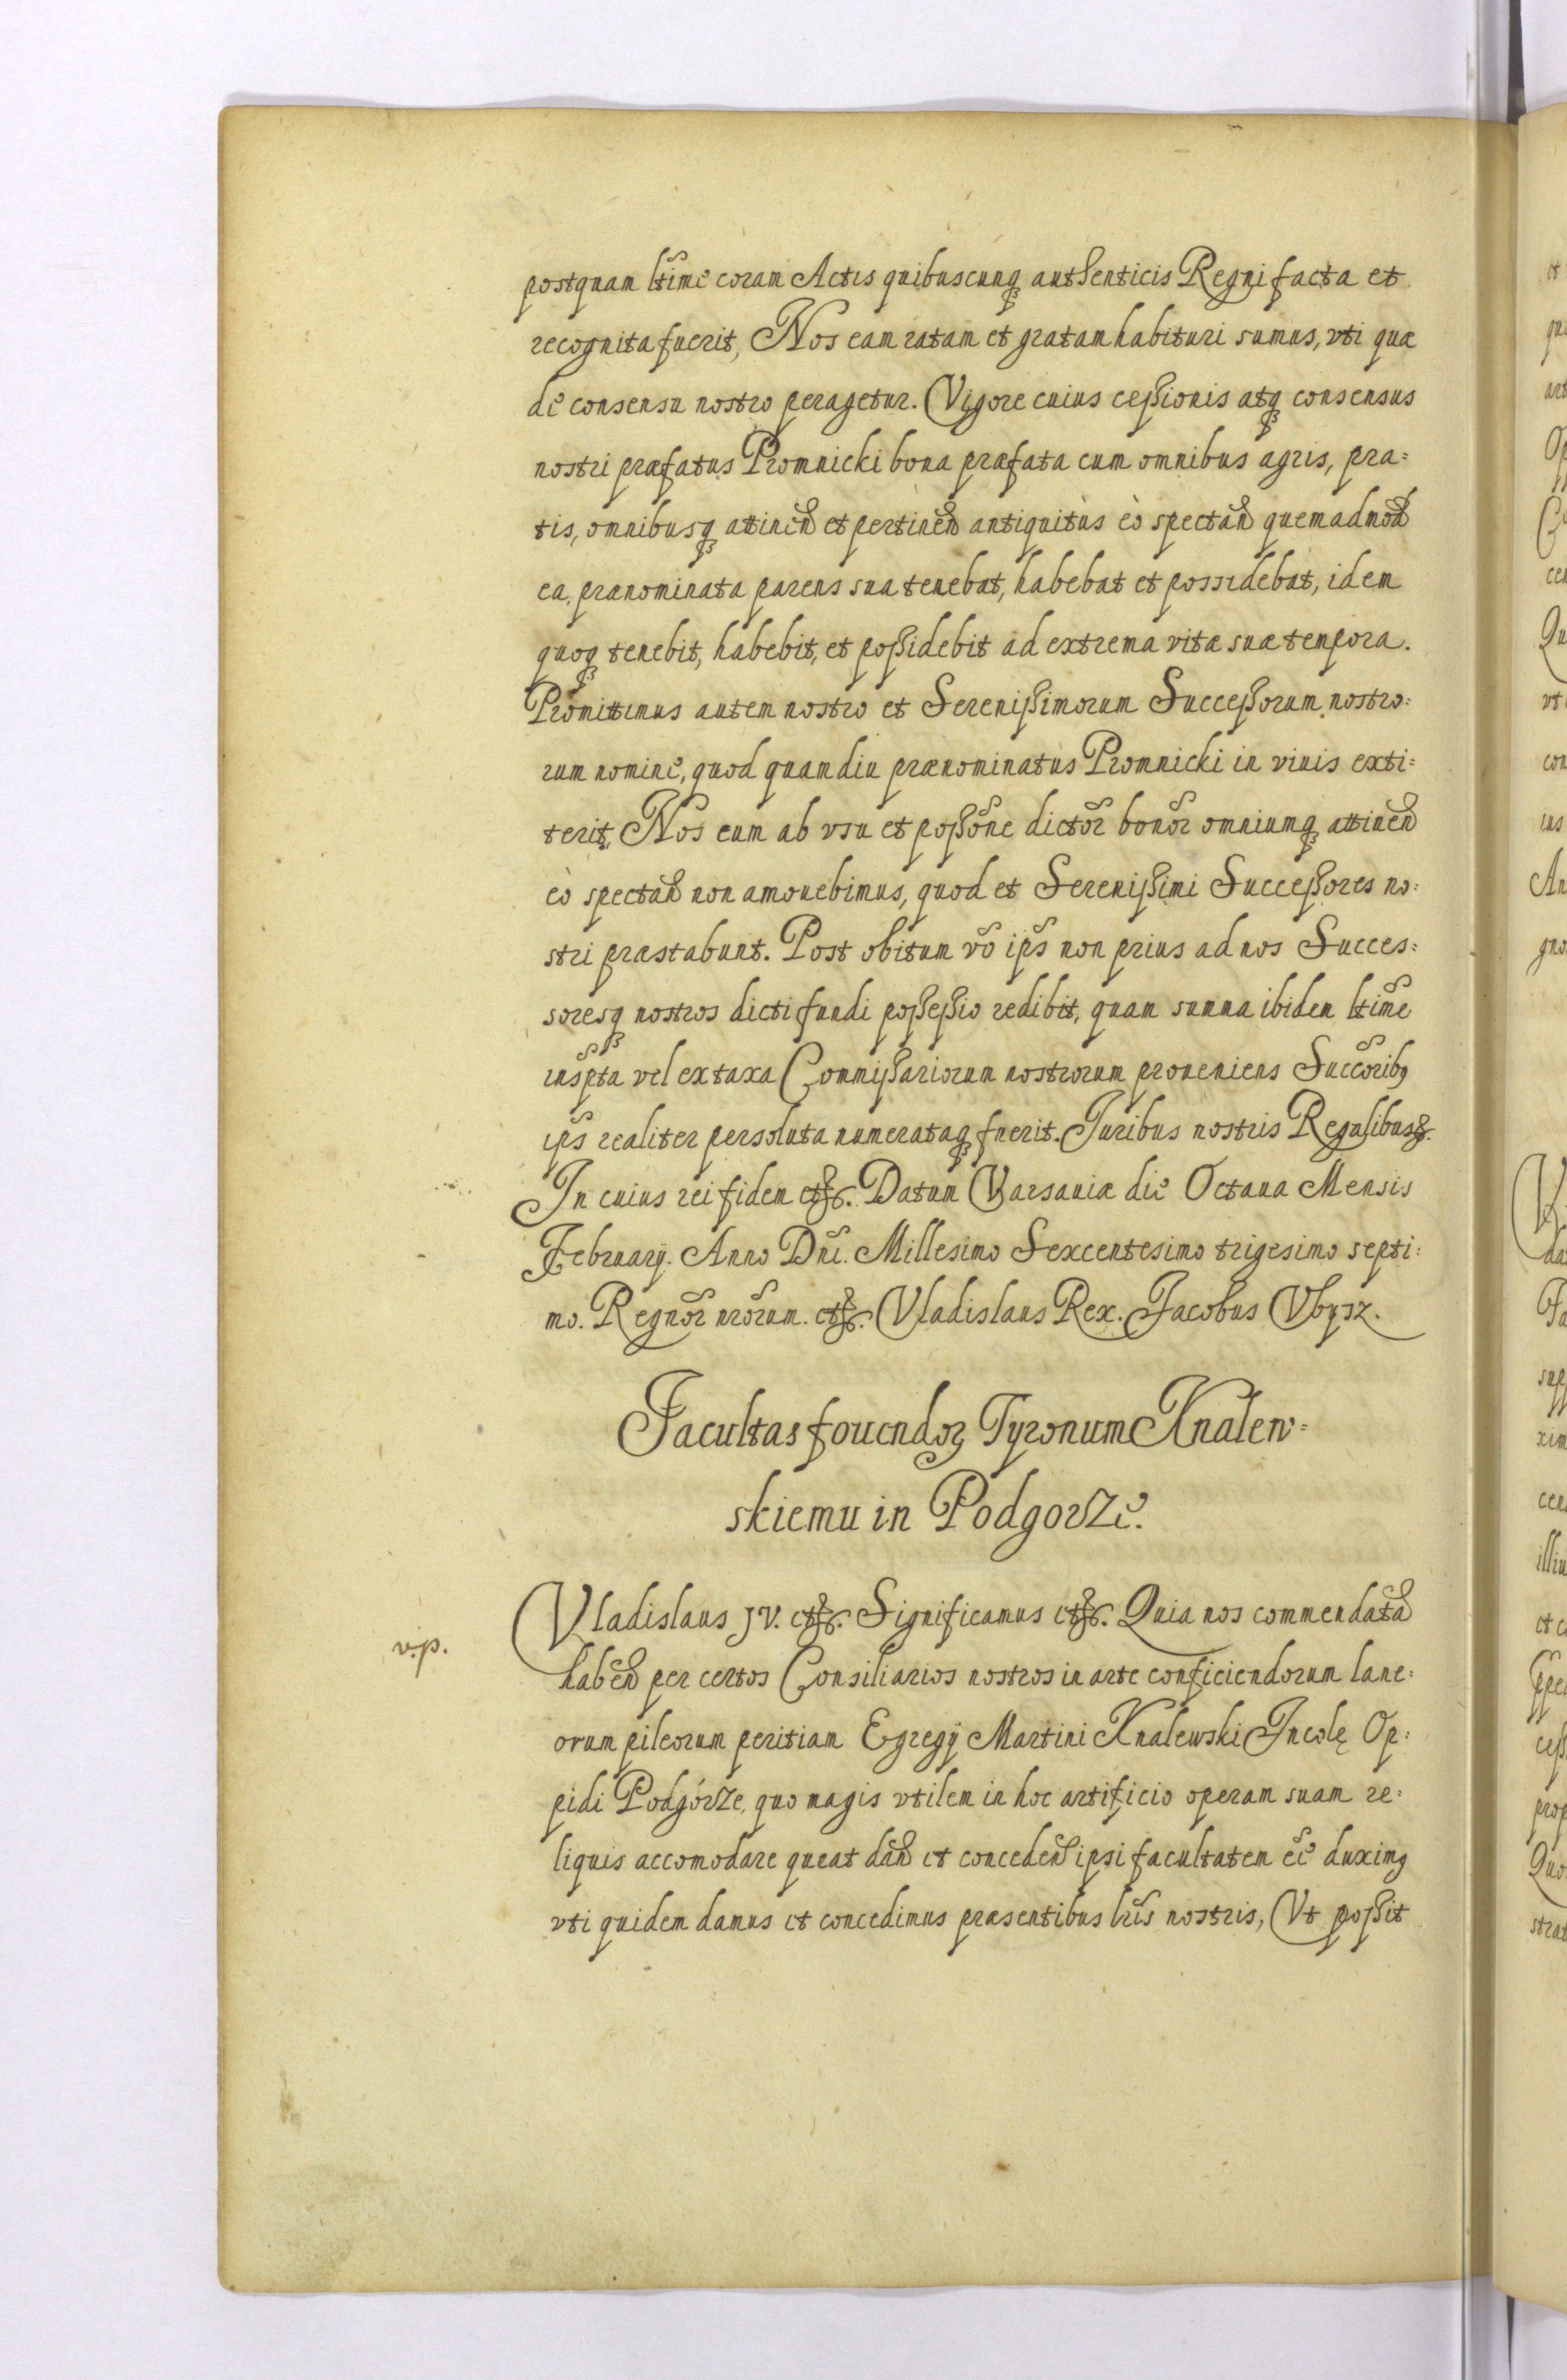 postquam ltime coram Actis quibuscunq authenticis Regni facta et
recognita fuerit, Nos eam ratam et gratam habituri sumus, vti quæ
de consensu nostro peragetur. Vigore cuius ceßionis atq consensus
nostri præfatus Promnicki bona præfata cum omnibus agris, pra=
tis, omnibusq attinen et pertinen antiquitùs eò spectan quemadmod
ea prænominata parens sua tenebat, habebat et possidebat, idem
quoq tenebit, habebit, et poßidebit ad extrema vitæ suæ tempora.
Promittimus autem nostro et Sereniß imorum Succeßorum nostro=
rum nomine, quod quamdiu prænominatus Promnicki in viuis exti=
terit, Nos eum ab vsu et poßone dictor bonor omniumq attinen
eò spectan non amouebimus, quod et Sereniß imi Succeßores no=
stri præstabunt. Post obitum vo ips non prius ad nos Succes=
soresq nostros dicti fundi poßeßio redibit, quam summa ibidem ltime
inspta vel ex taxa Commißariorum nostrorum proueniens Succoribq
ips realiter persoluta numerataq fuerit. Juribus nostris Regalibus &.
In cuius rei fidem etc. Datum Varsauiæ die Octaua Mensis
February. Anno Dni. Millesimo Sexcentesimo trigesimo septi=
mo. Regnor nrorum. etc. Vladislaus Rex. Jacobus Vbysz.
Facultas fouendor Tyronum Knalew=
skiemu in Podgorze.
v.p.
Vladislaus JV. etc. Significamus etc. Quia nos commendata
haben per certos Consiliarios nostros in arte conficiendorum lane=
orum pileorum peritiam Egregij Martini Knalewski Incolę Op=
pidi Podgórze, quo magis vtilem in hoc artificio operam suam re=
liquis accomodare queat dan et conceden ipsi facultatem ee duximq
vti quidem damus et concedimus præsentibus lris nostris, Vt poßit